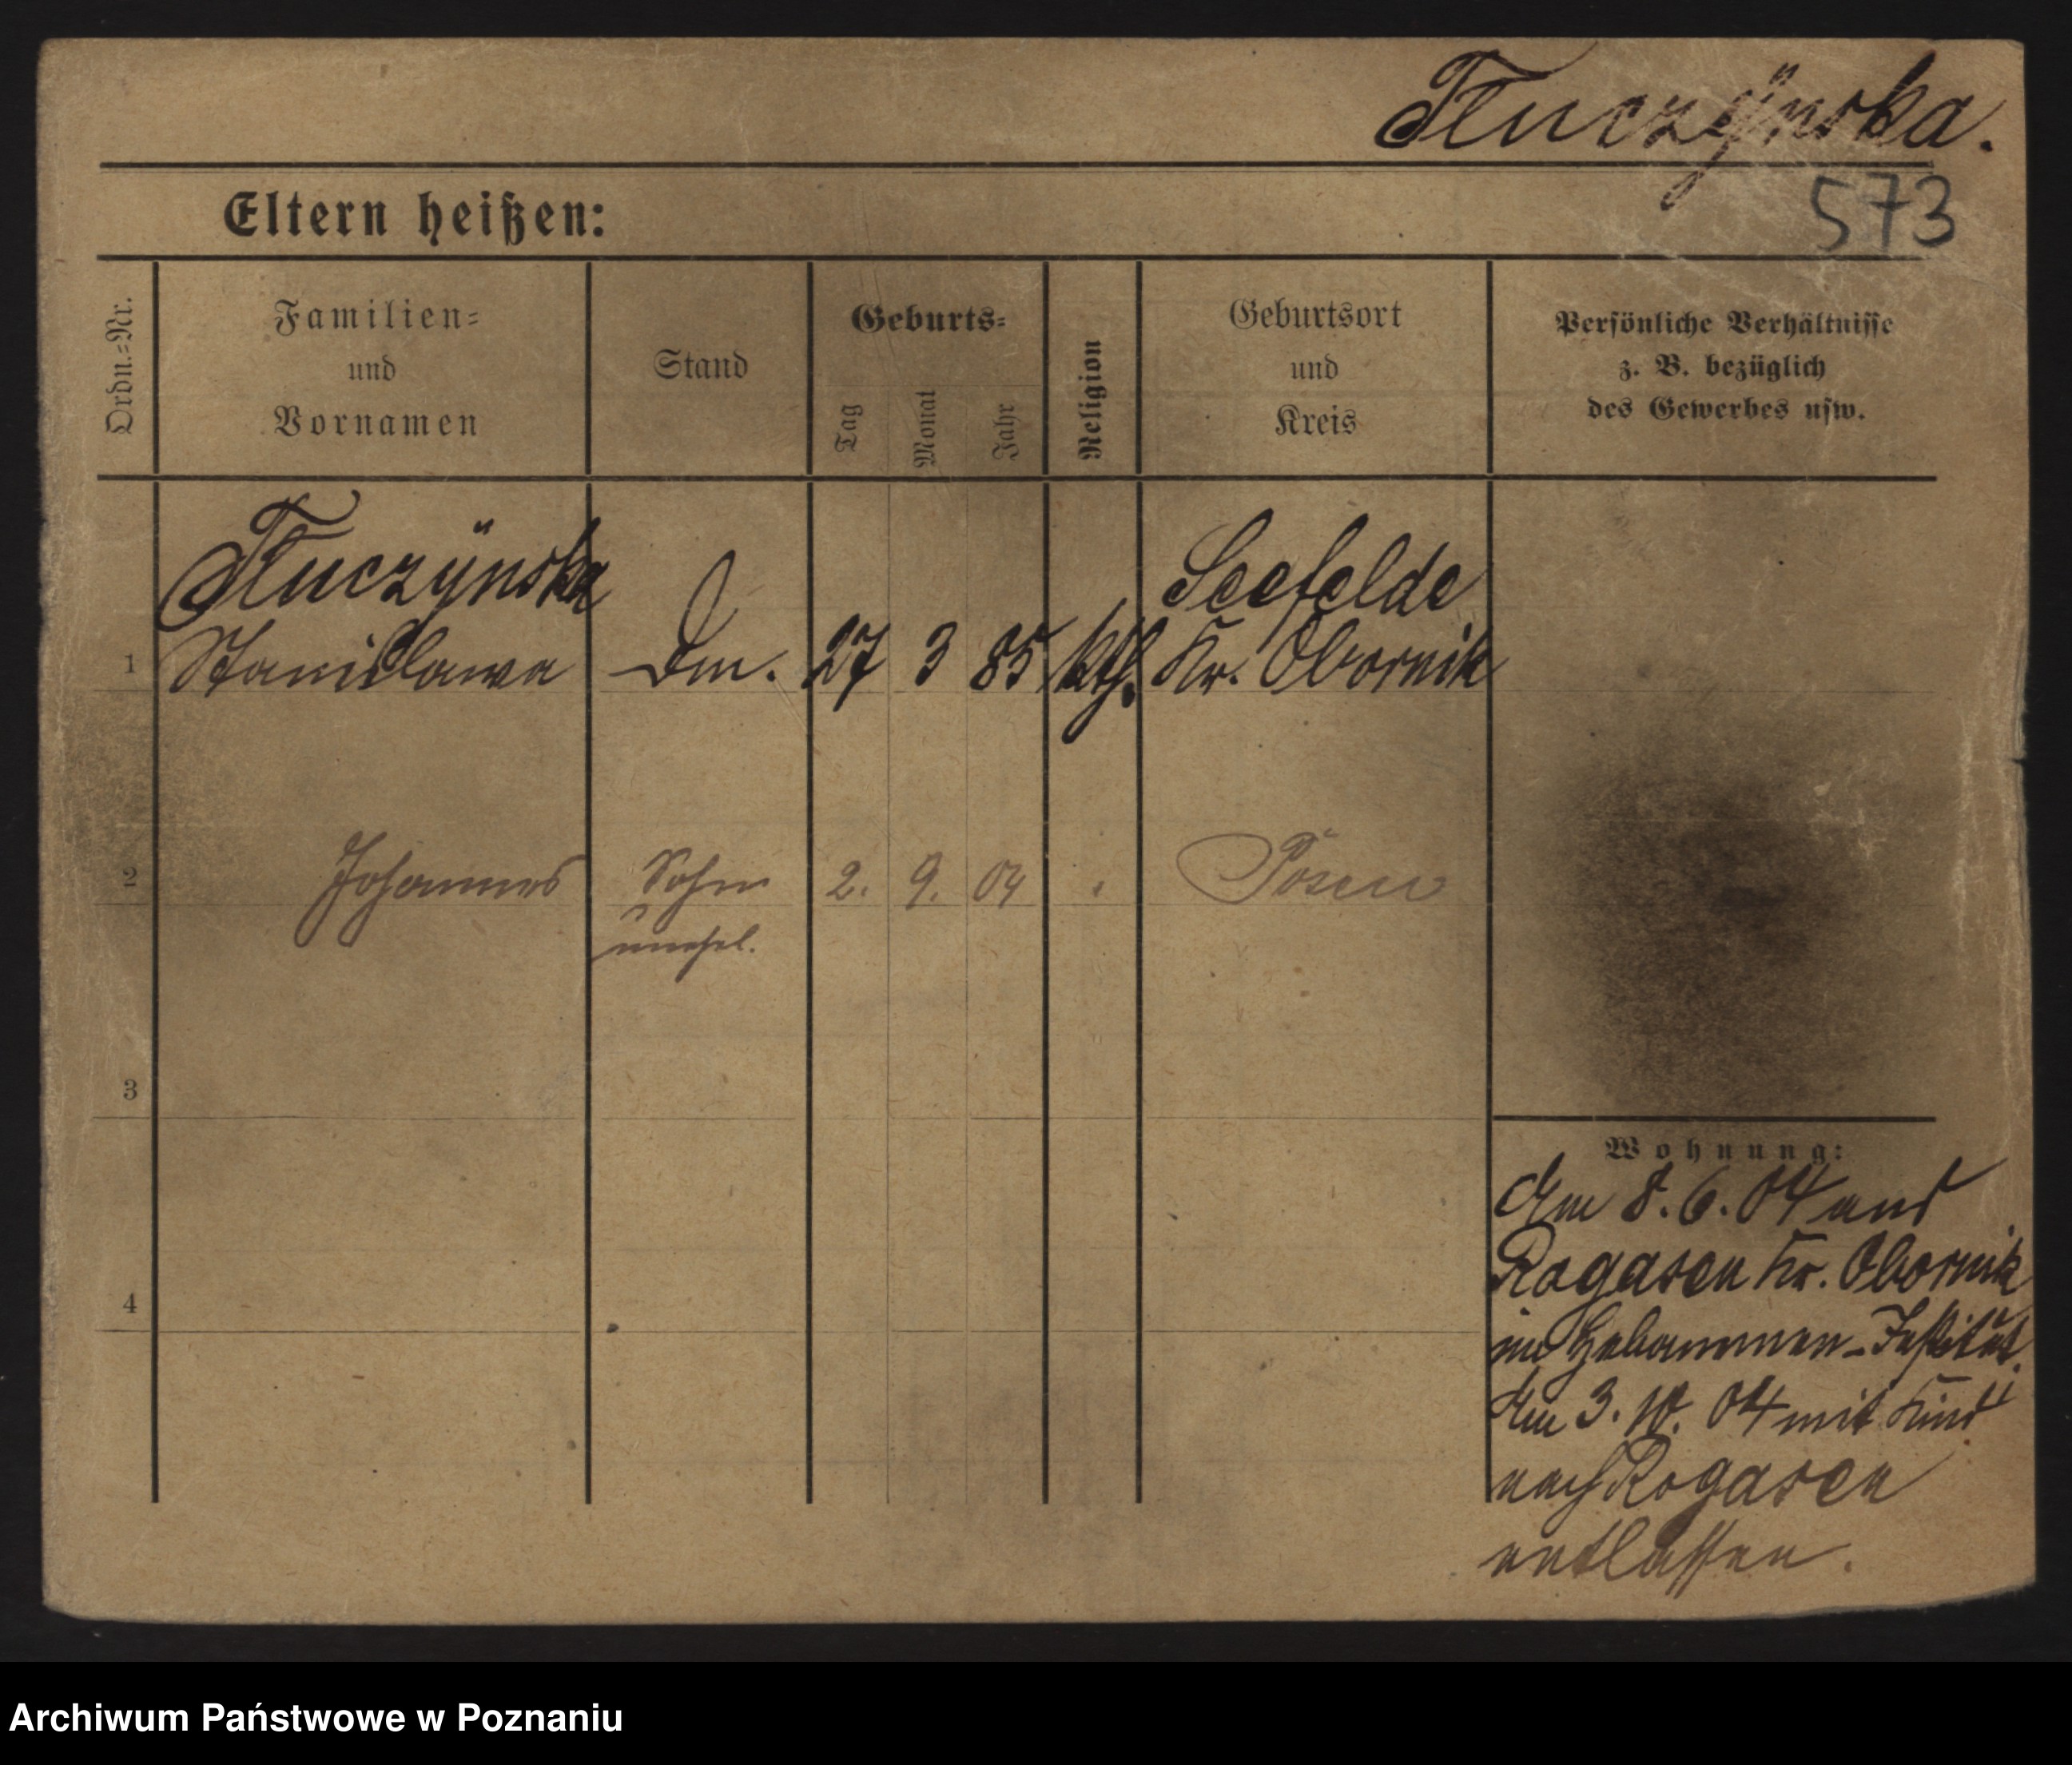 Tluczÿnska.
573
Eltern heißen:
Ordn.=Nr.
Familien=
und
Vornamen
Stand
Geburts=
Tag
Monat
Jahr
Religion
Geburtsort
und
Kreis
Persönliche Verhältnisse
z. B. bezüglich
des Gewerbes usw.
Tluczÿnska Seefelde
1 Stanislawa 27 3 85 kth. Kr. Obornik
2 Johannes Sohn 2. 9. 04 Posen
unehel.
3
Wohnung:
Am 8. 6. 04 aus
Rogasen Kr. Obornik
im Hebammen-Institut.
Am 3. 10. 04 mit Kind
nach Rogasen
entlassen.
4
Archiwum Państwowe w Poznaniu